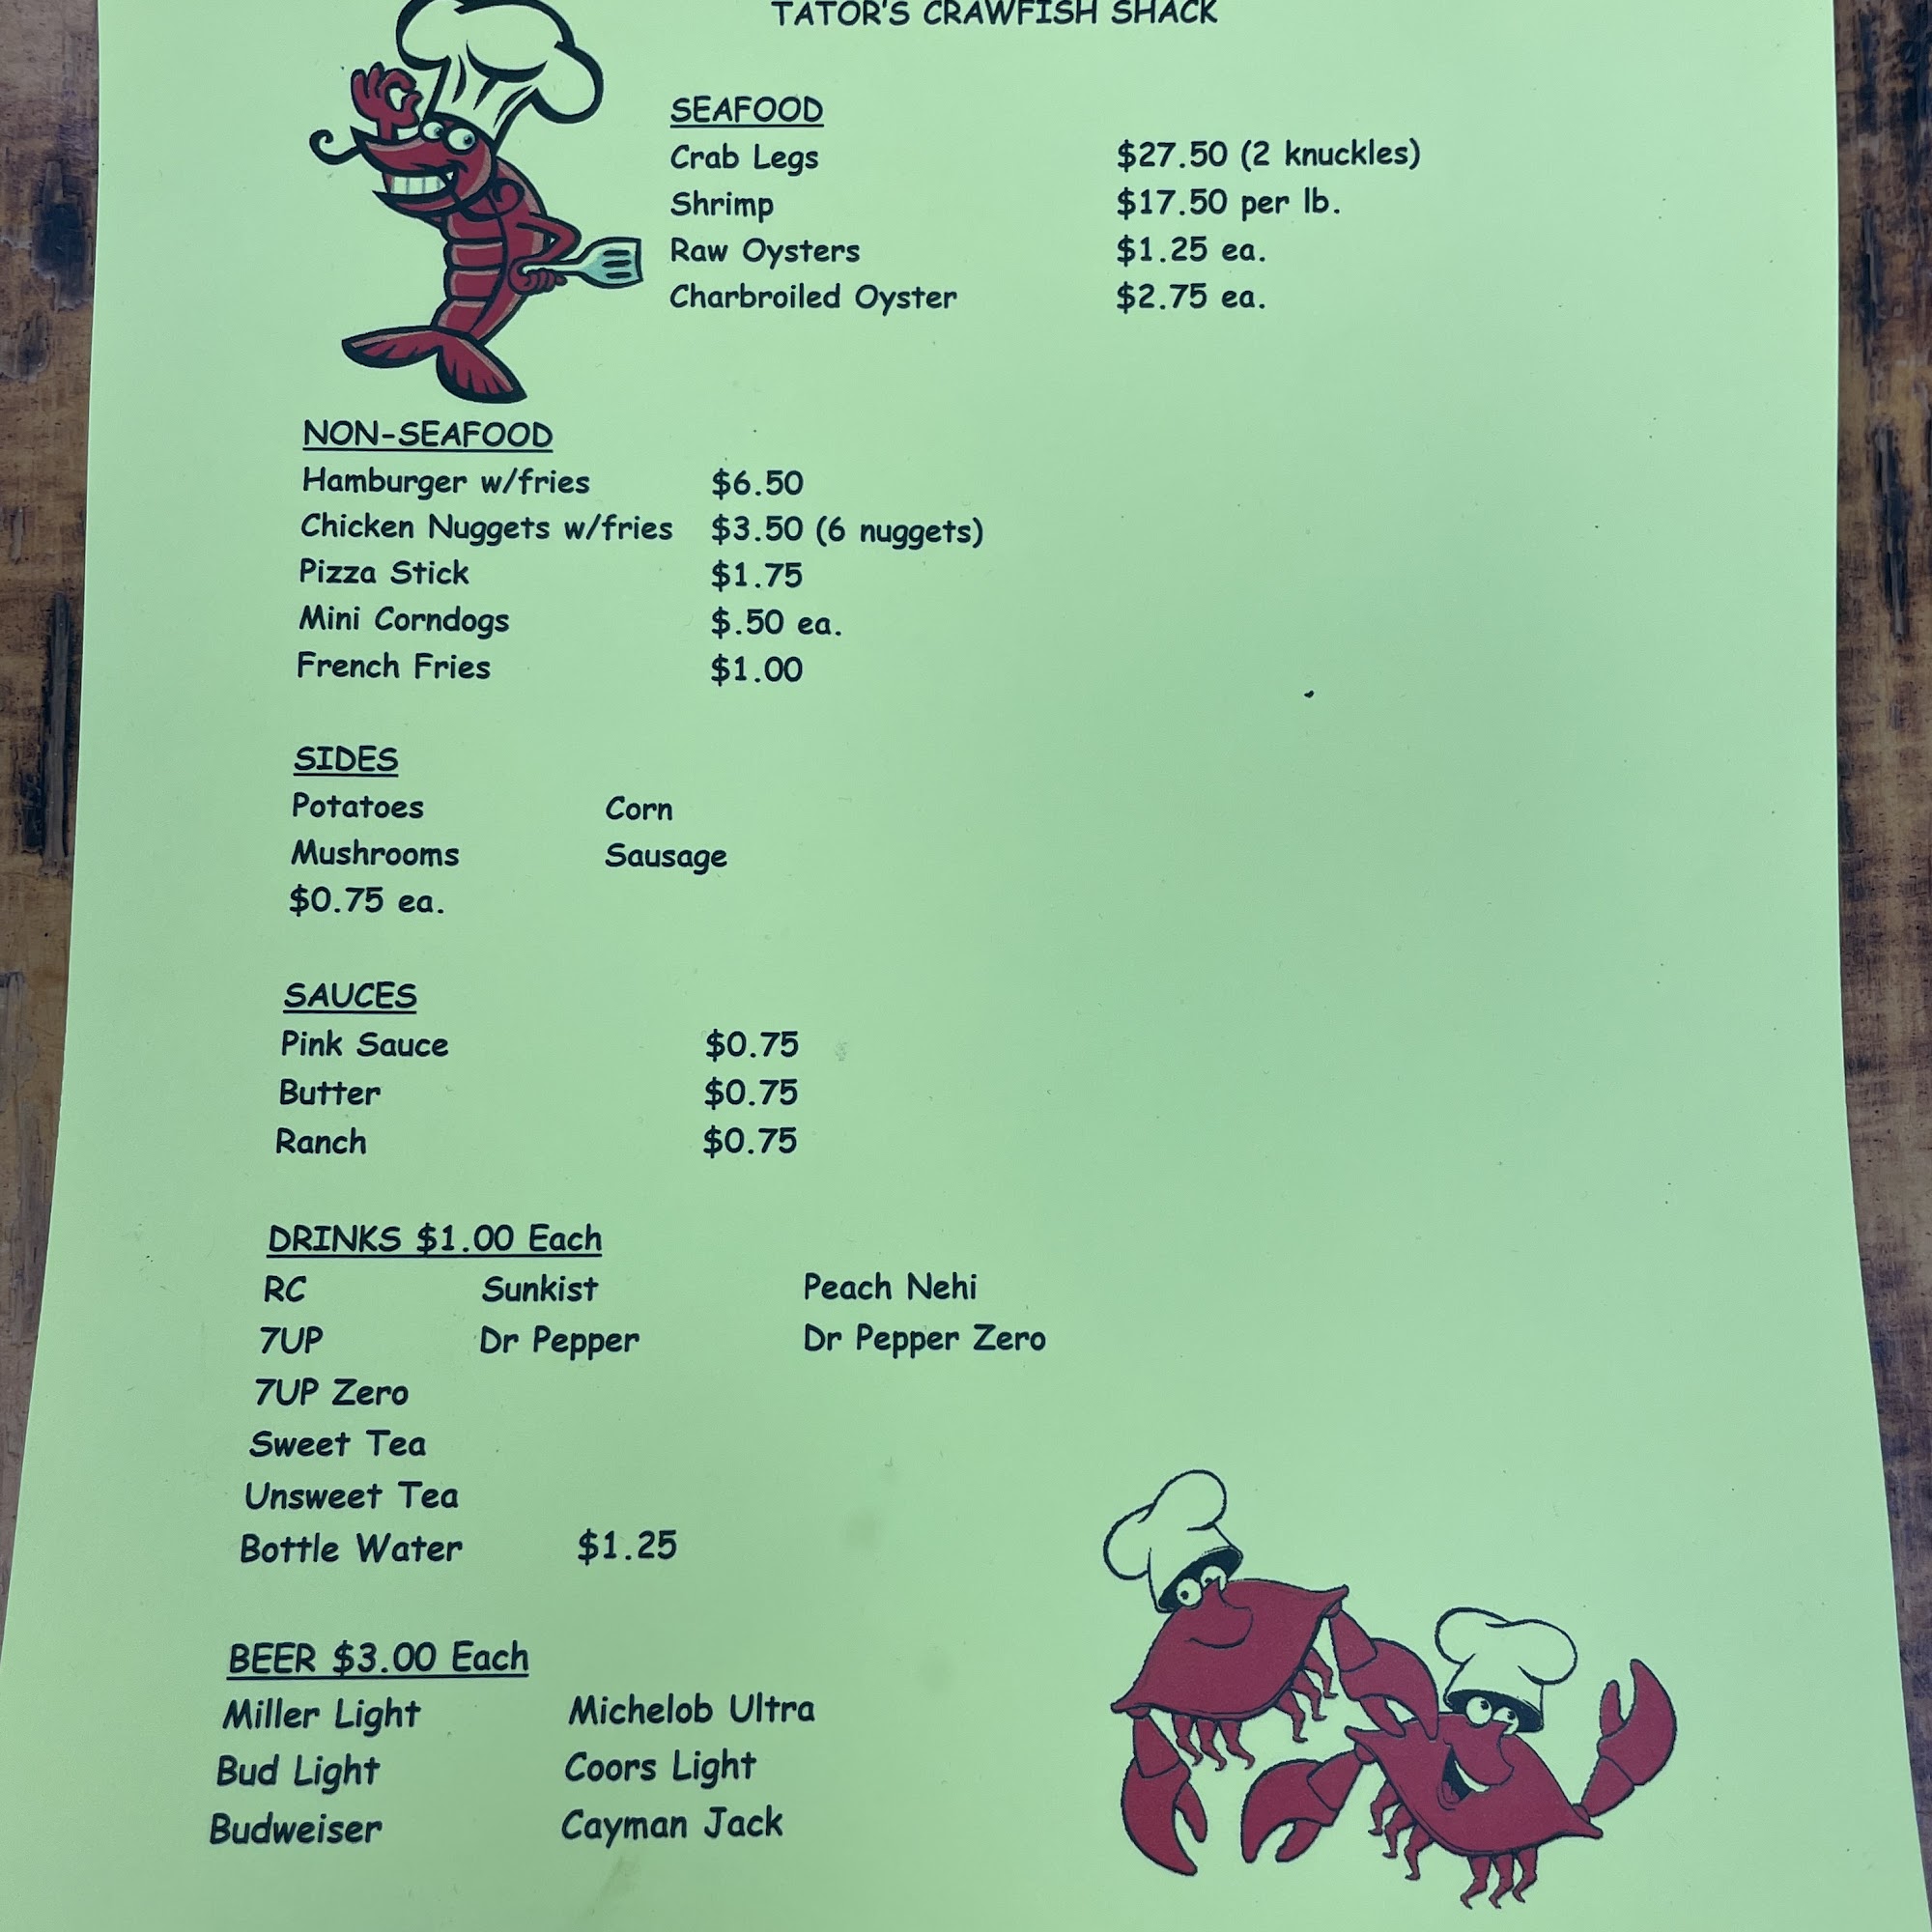 TATOR'S CRAWFISH SHACK
SEAFOOD
Crab Legs $27.50 (2 knuckles)
Shrimp $17.50 per lb.
Raw Oysters $1.25 ea.
Charbroiled Oyster $2.75 ea.
NON-SEAFOOD
Hamburger w/fries $6.50
Chicken Nuggets w/fries $3.50 (6 nuggets)
Pizza Stick $1.75
Mini Corndogs $.50 ea.
French Fries $1.00
SIDES
Potatoes Corn
Mushrooms Sausage
$0.75 ea.
SAUCES
Pink Sauce $0.75
Butter $0.75
Ranch $0.75
DRINKS $1.00 Each
RC Sunkist Peach Nehi
7UP Dr Pepper Dr Pepper Zero
7UP Zero
Sweet Tea
Unsweet Tea
Bottle Water $1.25
BEER $3.00 Each
Miller Light Michelob Ultra
Bud Light Coors Light
Budweiser Cayman Jack